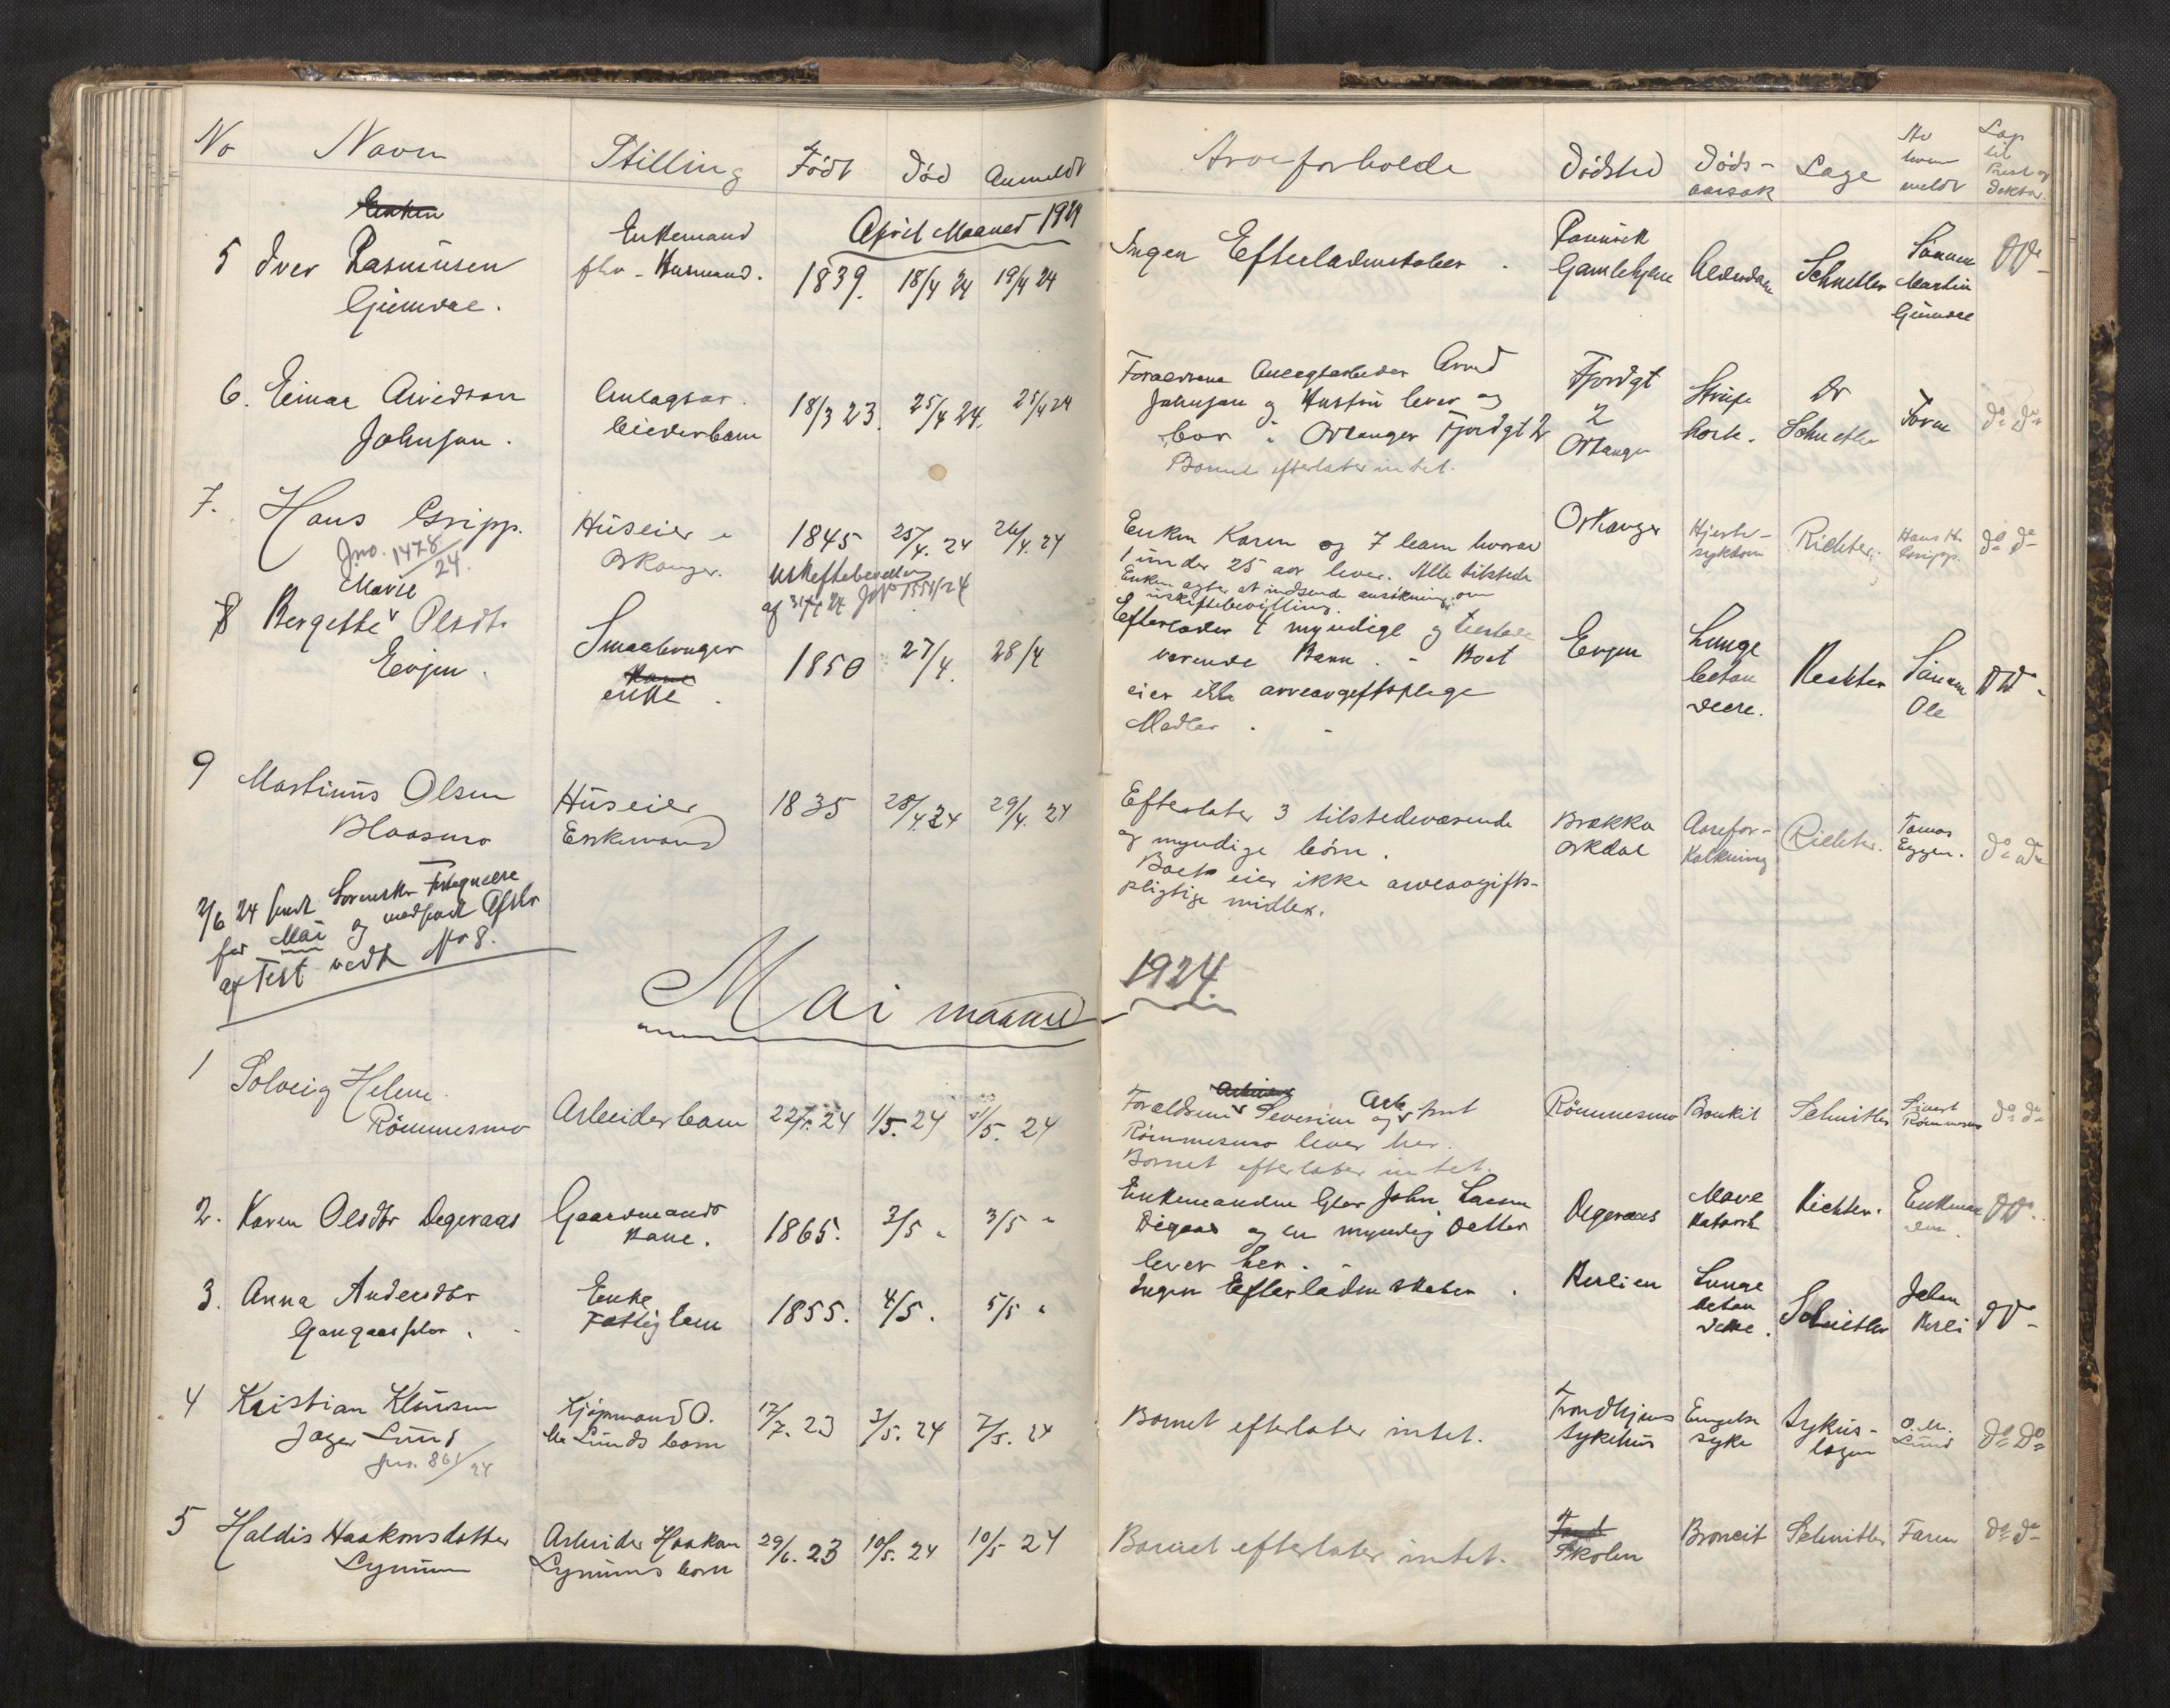 No Navn Stilling Født Død Anmeldt Arveforholde Dødsted Døds- Læge Av Lap
aarsak hvem til
meldt Prest og
Doktor.
Enken
April Maaned 1924
5 Iver Rasmussen Enkemand 1839. 18/4 24 19/4 24 Ingen Efterladenskaber. Gamlehjem Schnitler Sönnen
Gjemdal. fhv - Husmand. Martin
6. Einar Arvedson 18/3 23. 25/4 24. 25/4 24 Arvid Fjordgt Strupe Dr
Johnsen. Johnsen og Hustru lever og 2 hoste. Schnitler do do
bor i Orkanger Fjordgt 2 Orkanger
Barnet efterlater intet.
7. Hans Gripp. Huseier i 1845 25/4. 24 26/4. 24 Enken Karen og 7 barn hvorav Orkanger Hjerte- Richter. Hans H. do do
Jno. 1478/24. Orkanger. 1 under 25 aar lever. Alle tilstede sykdom Gripp.
Uskiftebevilling Enken agter at indsende ansökning om
af 31/5 24 Jno 1558/24 uskiftebevilling.
8 Bergette Marie Olsdtr Smaabruger 1850 27/4. 28/4 Efterlader 4 myndige og tilstede Evjen Lunge Richter Sönnen
Evjen. Kone værende Barn. - Boet betæn Ole
enke. eier ikke arveavgiftsplige delse.
Midler.
9 Martinus Olsen Huseier 1835 28/4. 24 29/4. 24 Efterlater 3 tilstedeværende Brækka Aarefor- Richter. Tomas do do
Blaasmo Enkemand og myndige börn. Orkdal kalkning Eggen.
Boet eier ikke arveavgifts-
pligtige midler.
2/6 24 sendt Sorenskr. Fortegnelse
for Mai og medsendt Afskr
af Test vedk No 8.
Mai maaned 1924.
1 Solveig Helene Arbeiderbarn 22/1. 24 1/5. 24 1/5. 24 Forældrene Severine og Arb Römmesmo Bronkit Schnitler Sivert do do
Römmesmo Römmesmo lever her. Römmesmo
Barnet efterlater intet.
2. Karen Olsdtr Degeraas Gaardmands 1865. 2/5 " 3/5 " Enkemanden Gbr John Larsen Degeraas Mave Richter. Enkeman
Kone. Digeraas og en myndig Datter Katarrh den.
lever her. -
3. Anna Andersdtr Enke 1855. 4/5. 5/5 " Ingen Efterladenskaber. Kerlien Lunge Schnitler John
Gangaasplas. Fattiglem betæn Kerli
delse.
4 Kristian Klausen Kjøpmand O. 12/7. 23 3/5. 24 7/5. 24 Barnet efterlater intet. Trondhjems Engelsk Sykehus- O. M. do do
Jager Lund M. Lunds barn sykehus syke lægen Lund
Jno. 861/24
5 Haldis Haakonsdatter Arbeider Haakon 29/6. 23 10/5. 24 10/5 24 Barnet efterlater intet. Skolen Bronkit Schnitler Faren do do
Lynum Lynums barn